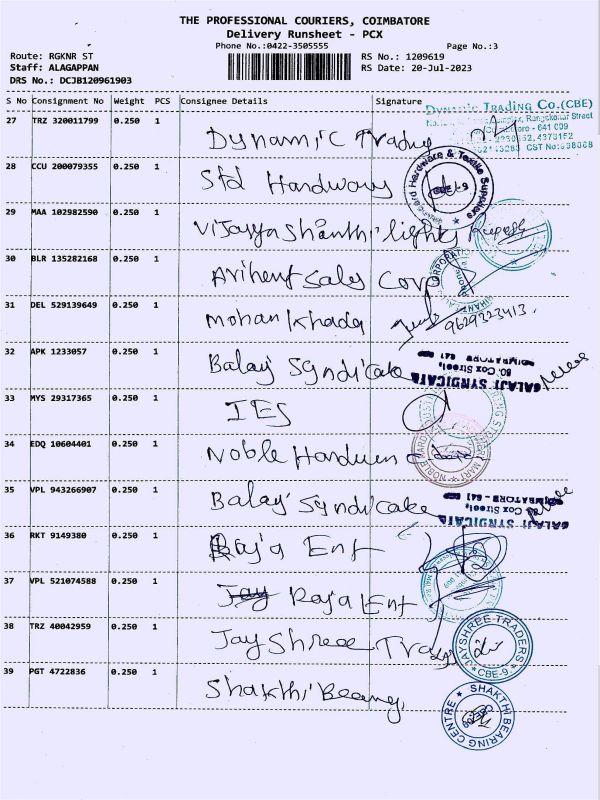 THE PROFESSIONAL COURIERS, COIMBATORE
Delivery Runsheet - PCX
Phone No.:0422-3505555 Page No.:3
Route: RGKNR ST RS No.: 1209619
Staff: ALAGAPPAN RS Date: 20-Jul-2023
DRS No.: DCJB120961903
S No Consignment No Weight PCS Consignee Details Signature
DYNAMIC TRADING CO.(CBE)
27 TRZ 320011799 0.250 1 Dynamic Trading
28 CCU 200079355 0.250 1 Std Hardwars
Hardware & Textile Suppliers
29 MAA 102982590 0.250 1 Vijayya Shanthi lights
30 BLR 135282168 0.250 1 Arihent Sales Corp
31 DEL 529139649 0.250 1 Mohan Khada
9629323413.
32 APK 1233057 0.250 1 Balaji Syndicate
BALAJI SYNDICATE
80, Cox Street,
33 MYS 29317365 0.250 1 IES
34 EDQ 10604401 0.250 1 Noble Hardware
35 VPL 943266907 0.250 1 Balaji Syndicate
BALAJI SYNDICATE
Cox Street,
36 RKT 9149380 0.250 1 Raja Ent
37 VPL 521074588 0.250 1 Raja Ent
38 TRZ 40042959 0.250 1 Jay Shree Trads
JAYSHREE TRADERS
CBE-9
39 PGT 4722836 0.250 1 Shakthi Bearing
SHAKTHI BEARING CENTRE